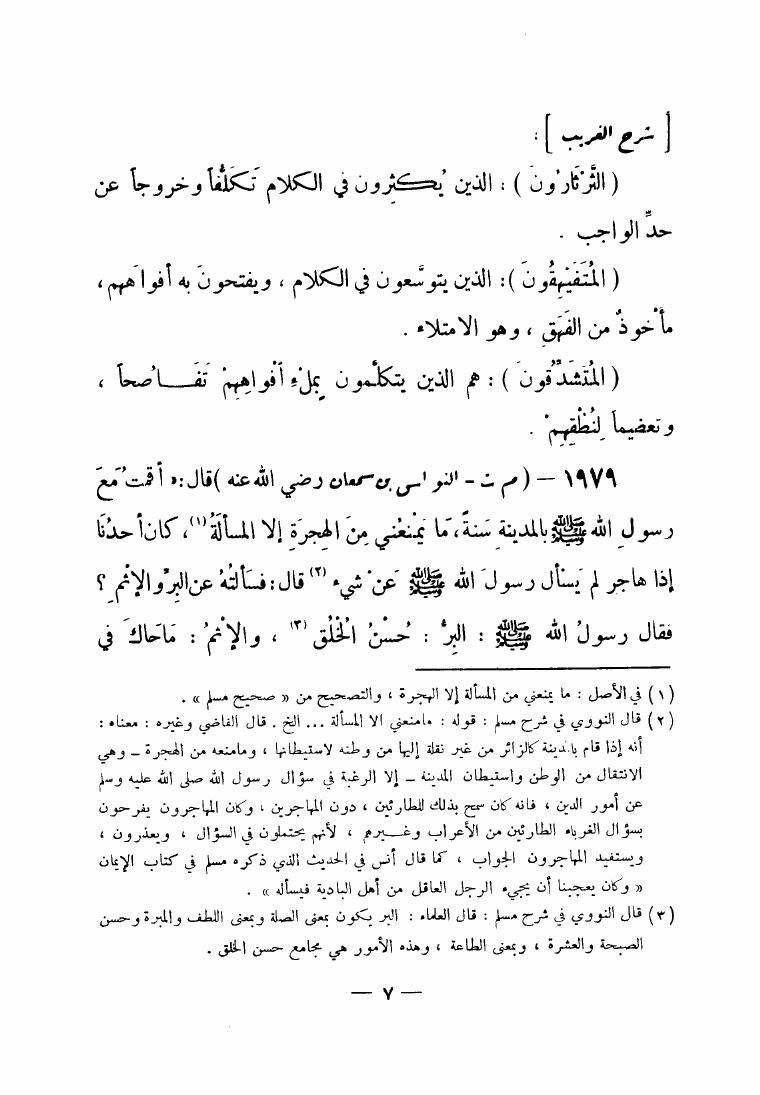 [ شرح الغريب ] :
( الثَّرْثَارُونَ ) : الذين يُكثِرون في الكلام تَكَلُّفاً وخروجاً عن
حدِّ الواجب .
( المُتَفَيْهِقُونَ ) : الذين يتوسَّعون في الكلام ، ويفتحونَ به أفواههم ،
مأخوذٌ من الفَهَق ، وهو الامتلاء .
( المُتَشَدِّقونَ ) : هم الذين يتكلَّمون بِمِلْءِ أفْواهِهِمْ تَفَاصُحاً ،
وتعضيماً لِنُطْقِهِمْ .
١٩٧٩ – ( م ت - النواس بن سمعان رضي الله عنه ) قال : « أقمتُ مَعَ
رسولِ الله ﷺ بالمدينةِ سَنةً ، مَا يَمْنَعُني مِنَ الهِجرَةِ إلا المسألَةُ (١) ، كان أحدُنَا
إذا هاجر لم يَسْأل رسولَ الله ﷺ عَنْ شيءٍ (٢) قال : فسألتُهُ عن البِرِّ والإثْمِ ؟
فقال رسولُ الله ﷺ : البِرُّ : حُسْنُ الْخُلُق (٣) ، والإثْمُ : مَا حَاكَ في
(١) في الأصل : ما يمنعني من المسألة إلا الهجرة ، والتصحيح من « صحيح مسلم » .
(٢) قال النووي في شرح مسلم : قوله : مامنعني الا المسألة ... الخ . قال القاضي وغيره : معناه :
أنه إذا قام بالمدينة كالزائر من غير نقلة إليها من وطنه لاستيطانها ، ومامنعه من الهجرة – وهي
الانتقال من الوطن واستيطان المدينة – إلا الرغبة في سؤال رسول الله صلى الله عليه وسلم
عن أمور الدين ، فانه كان سمح بذلك للطارئين ، دون المهاجرين ، وكان المهاجرون يفرحون
بسؤال الغرباء الطارئين من الأعراب وغيرهم ، لأنهم يحتملون في السؤال ، ويعذرون ،
ويستفيد المهاجرون الجواب ، كما قال أنس في الحديث الذي ذكره مسلم في كتاب الإيمان
« وكان يعجبنا أن يجيء الرجل العاقل من أهل البادية فيسأله » .
(٣) قال النووي في شرح مسلم : قال العلماء : البر يكون بمعنى الصلة وبمعنى اللطف والمبرة وحسن
الصحبة والعشرة ، وبمعنى الطاعة ، وهذه الأمور هي مجامع حسن الخلق .
— ٧ —